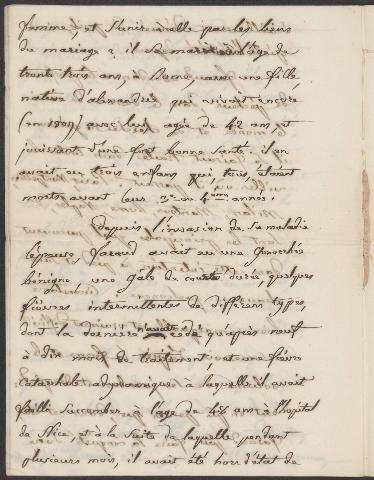 femme, et s'unir à elle par les liens
du mariage ; il se maria à l'âge de
trente trois ans, à Rome, avec une fille
native d'alexandrie qui vivait encore
(en 1809) avec lui, agée de 42 ans, et
jouissant d'une fort bonne santé : il en
avait eu trois enfans qui, tous, étaient
morts avant leur 3e ou 4eme année.
Depuis l'invasion de sa maladie
lépreuse, avait eu une
bénigne, une gale de courte durée, quelques
fièvres intermittentes de différens types,
dont la dernière n'avait cédé qu'après neuf
à dix mois de traitement, et une fièvre
catarrhale adynamique à laquelle il avait
failli succomber à l'age de 48 ans à l'hopital
de Nice et à la suite de laquelle pendant
plusieurs mois, il avait été hors d'état de